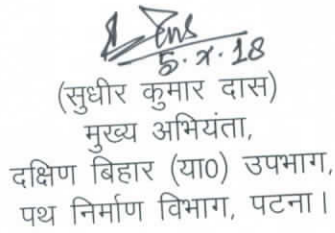 5.x.18
(सुधीर कुमार दास)
मुख्य अभियंता,
दक्षिण बिहार (या0) उपभाग,
पथ निर्माण विभाग, पटना।